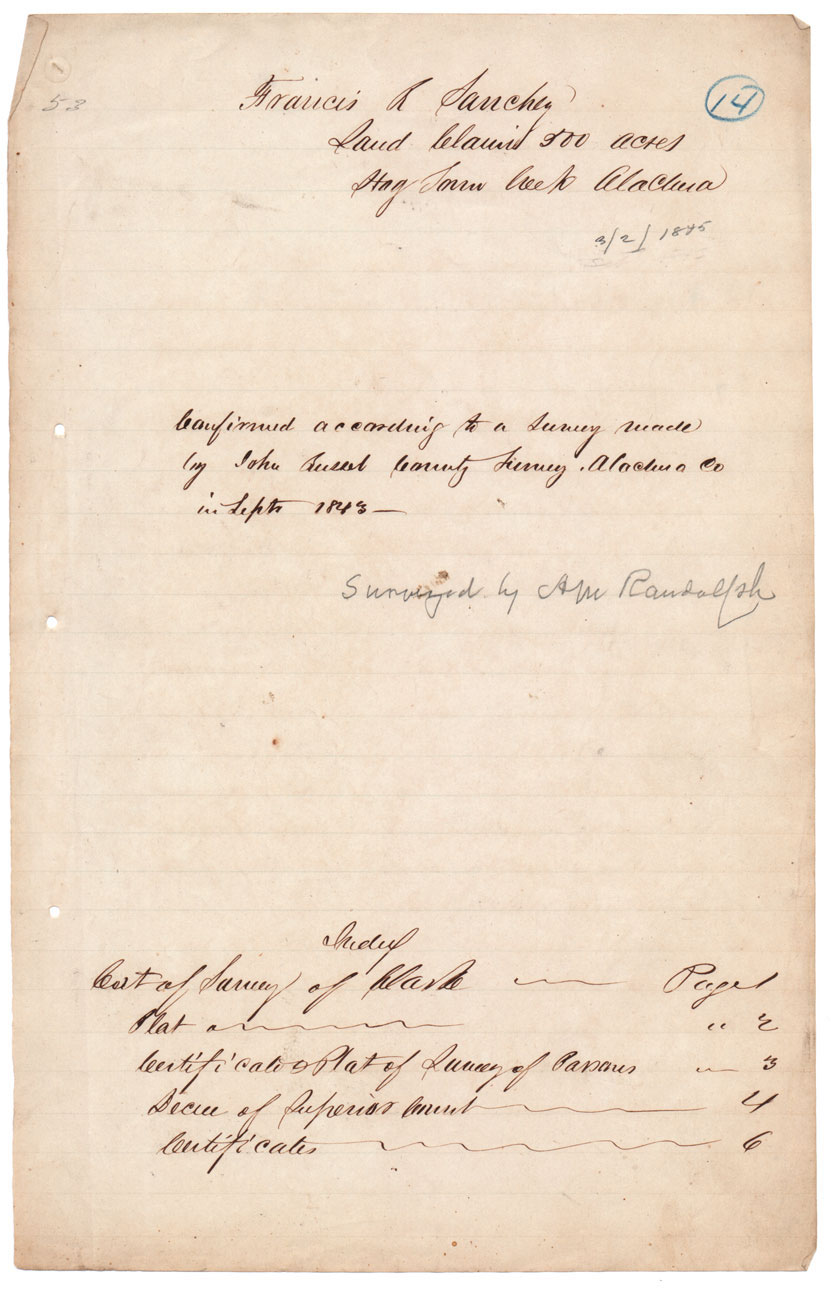 1
53
14
Francis R Sanchez
Land Claim 500 acres
Hog Town Creek Alachua
3/2/1845
Confirmed according to a Survey made
by John County Survey. Alachua Co
in Septr 1843 —
Surveyed by AM Randolph
Index
Cert of Survey of Clark — Page 1
Plat — " 2
Certificate & Plat of Survey of Parsons — 3
Decree of Superior Court — 4
Certificates — 6